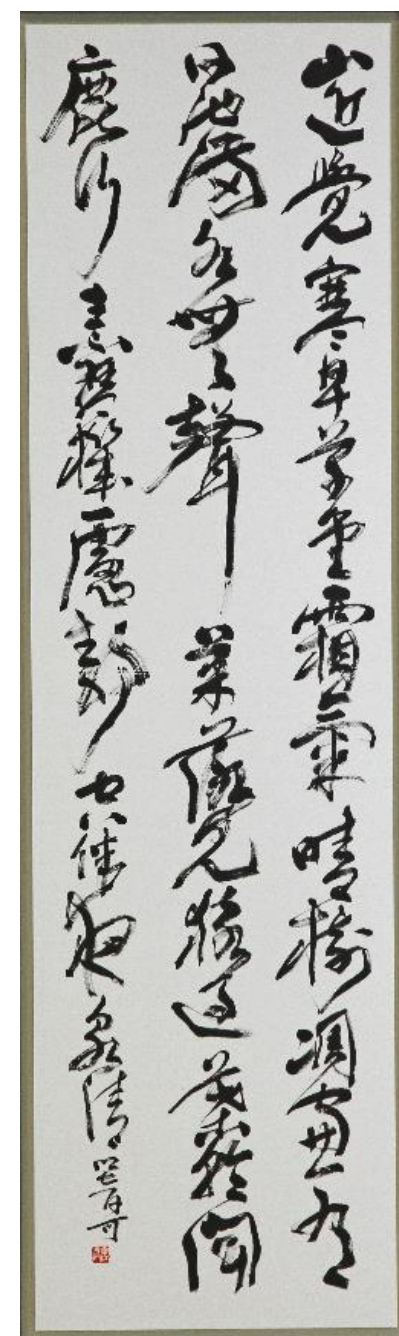 山近覺寒早草堂霜氣晴樹凋窗有
日池滿水無聲菓落見猿過葉乾聞
鹿行素琴機慮靜空伴夜泉清